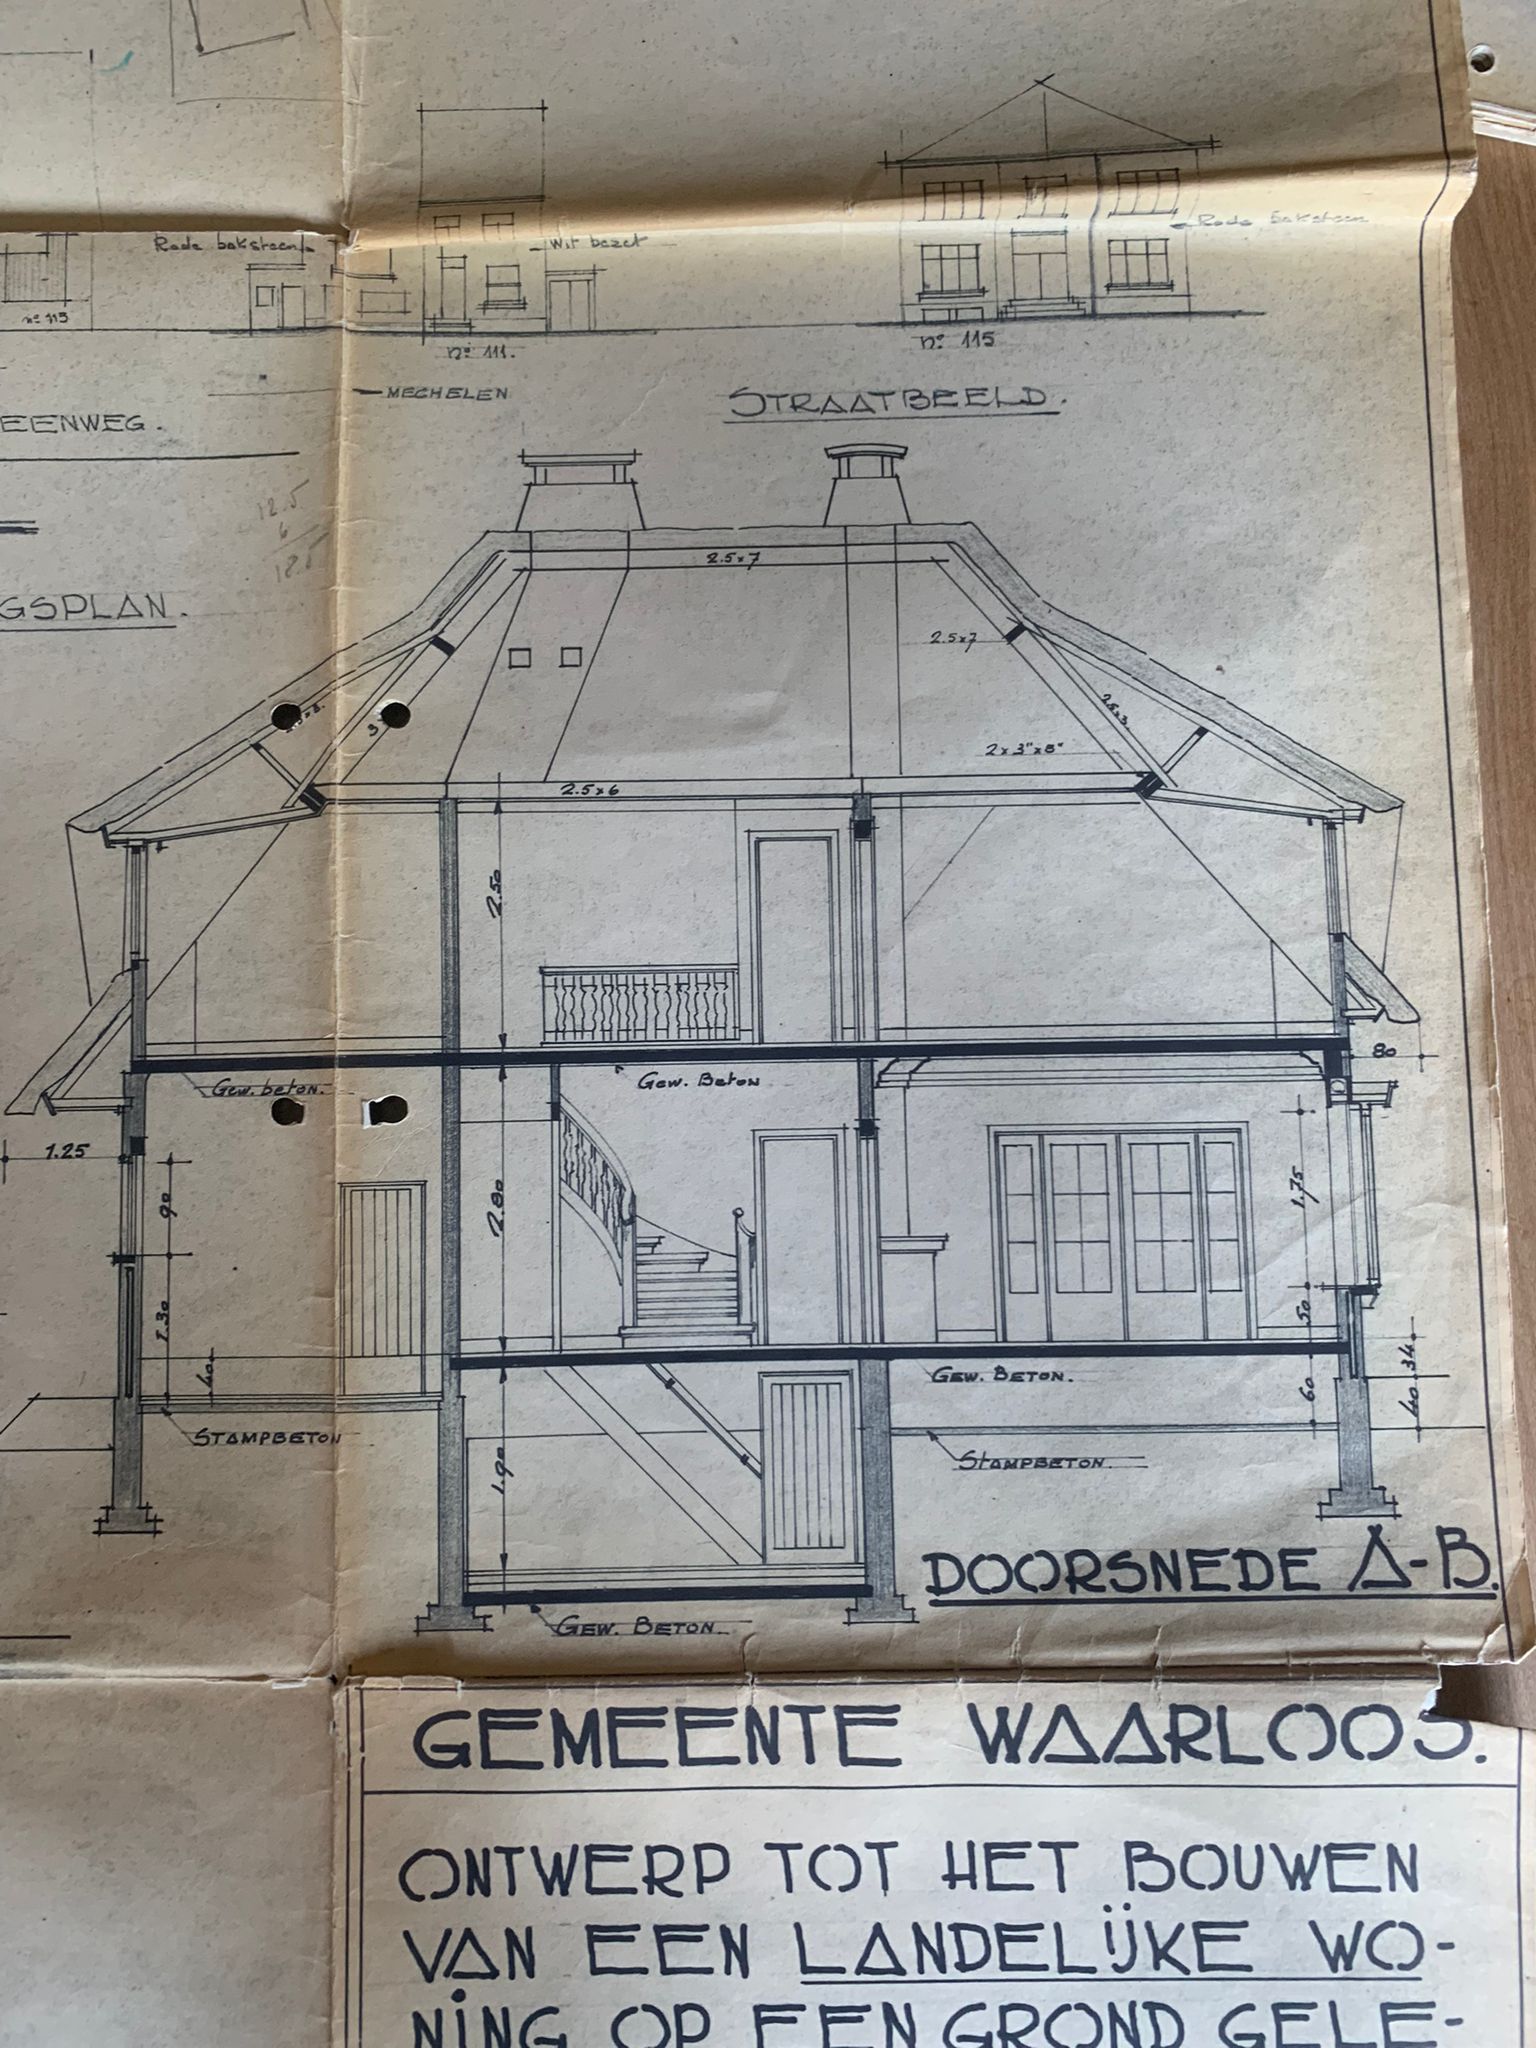 Rode baksteen
Wit bezet
Rode baksteen
no 113
no 111.
no 115
MECHELEN
STRAATBEELD.
EENWEG.
12.5
6
GSPLAN.
2.5x7
2.5x7
2.5x3
2x3"x8"
2.5x6
2.50
80
Gew. beton.
Gew. Beton
1.25
90
2.80
1.75
1.30
50
40
34
60
40
Gew. Beton.
Stampbeton
Stampbeton.
1.90
Gew. Beton
DOORSNEDE A-B.
GEMEENTE WAARLOOS.
ONTWERP TOT HET BOUWEN
VAN EEN LANDELIJKE WO-
NING OP EEN GROND GELE-